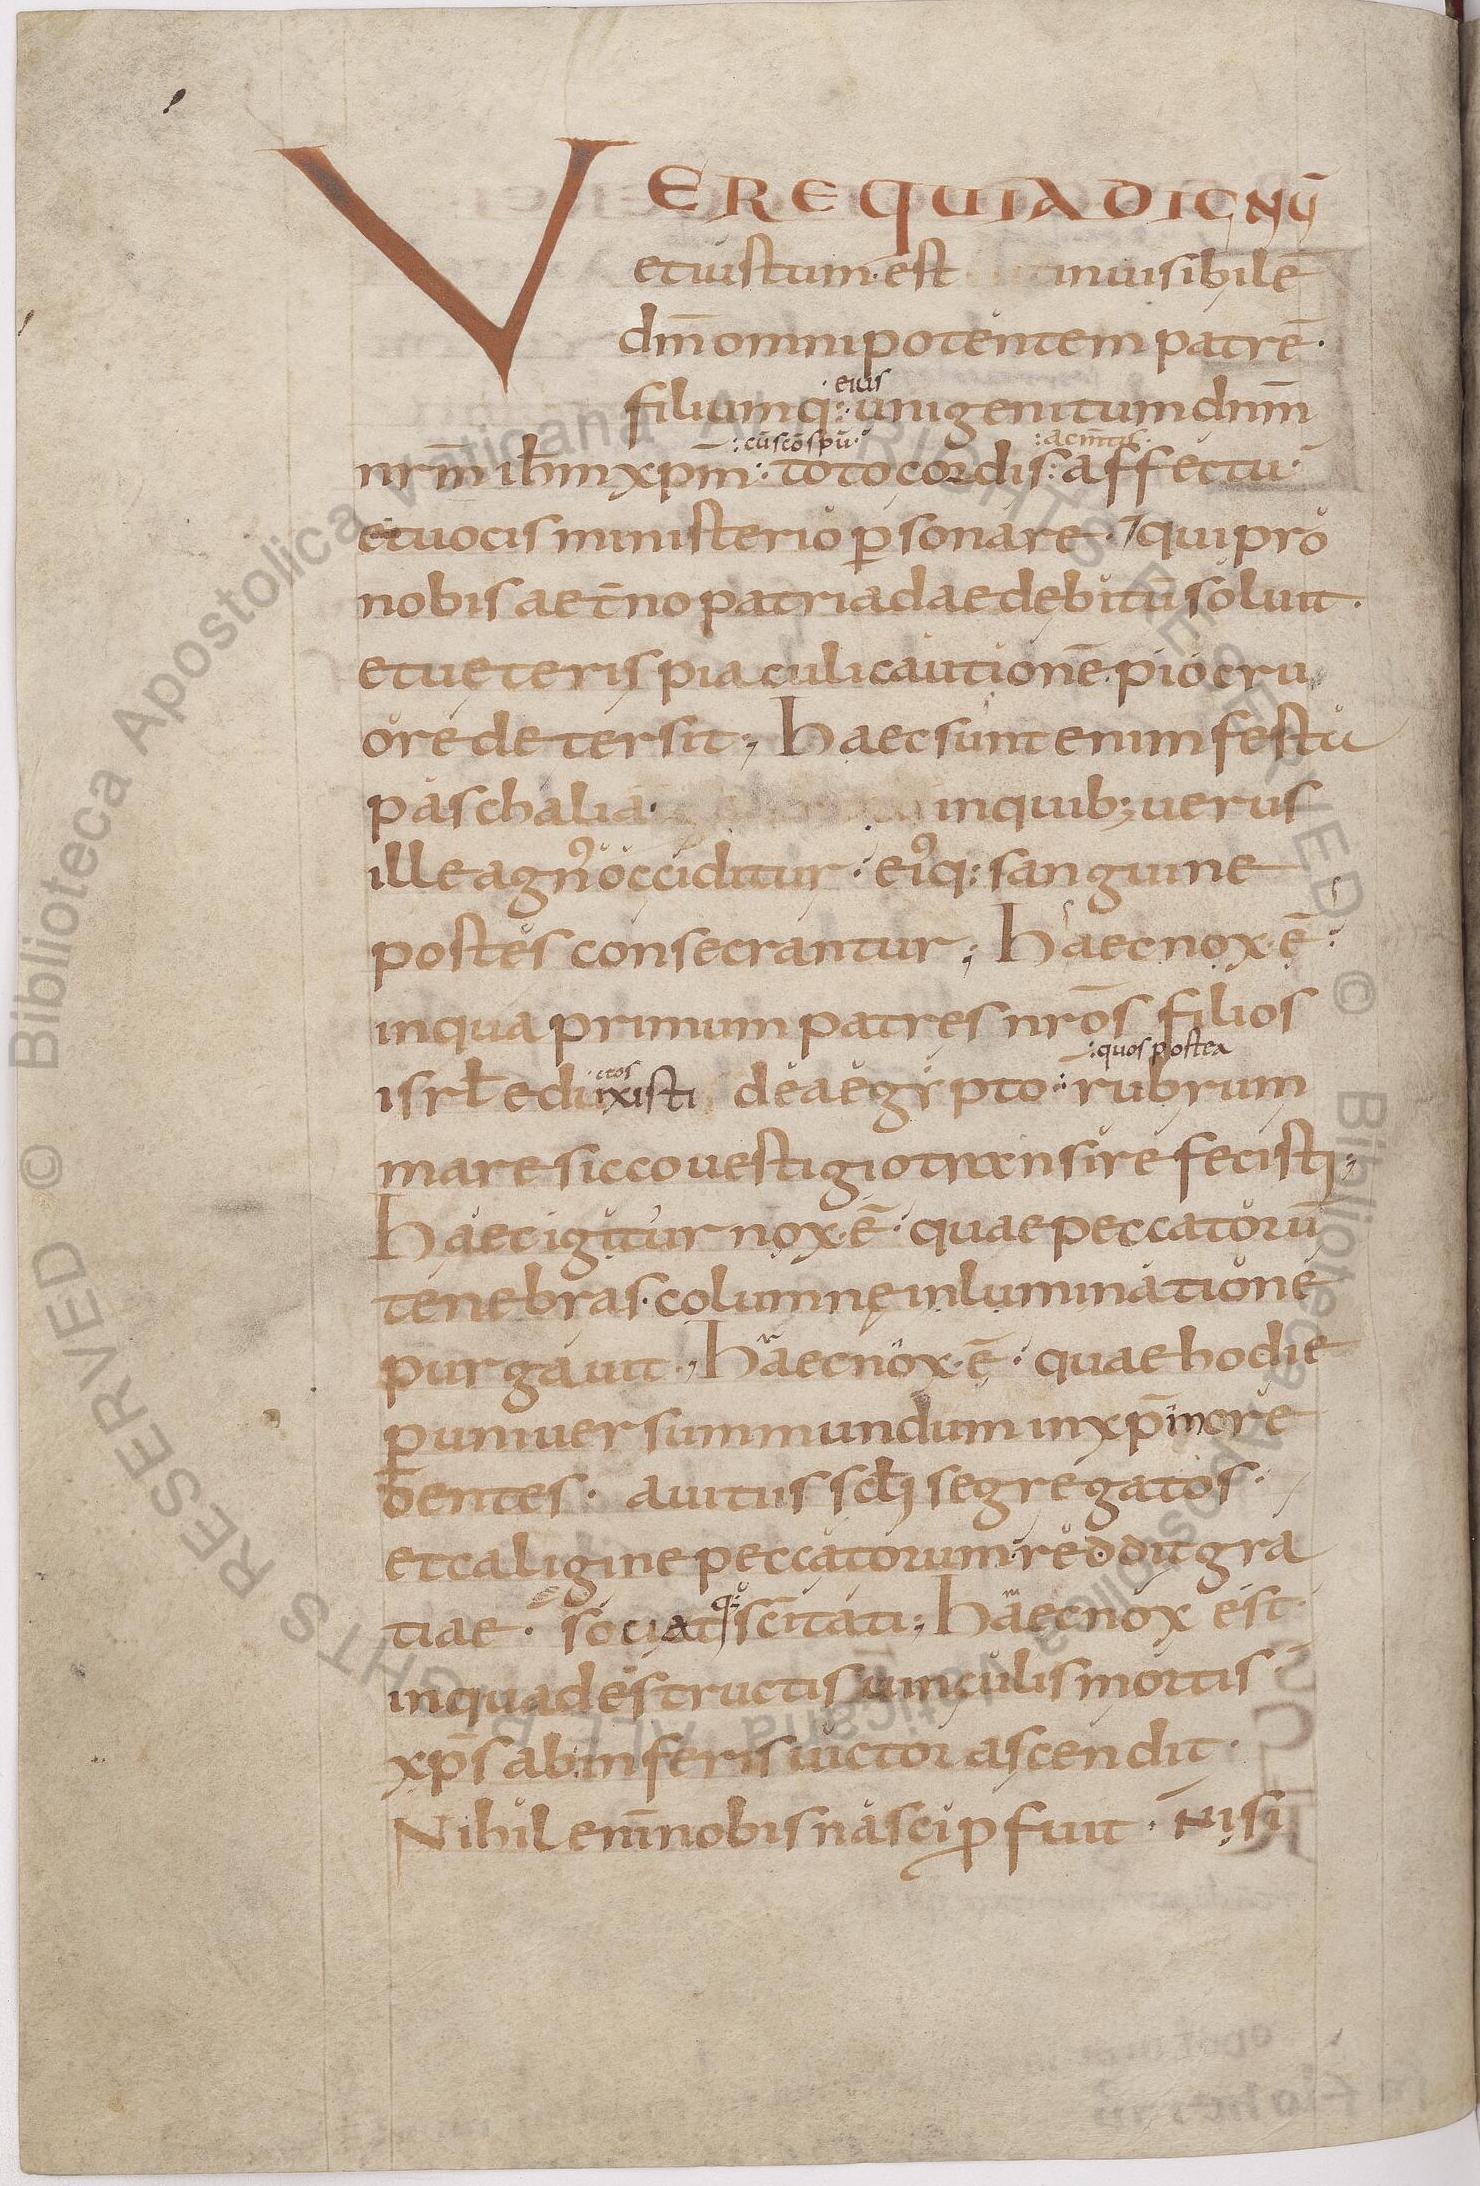 VERE QUIA DIGNŪ
et iustum est inuisibilē
dm̄ omnipotentem patrē·
filiumq: eius unigenitum dnm̄
nrm̄ ihm̄ xpm̄: cū sc̄o spū· toto cordis: ac mtis· affectu·
et uocis ministerio ꝑsonare· qui pro
nobis aet̄no patri adae debitū soluit·
et ueteris piaculi cautionē pio cru
ore detersit; haec sunt enim festa
paschalia· in quib; uerus
ille agn' occiditur· ei'q: sanguine
postes consecrantur; haec nox ē·
in qua primum patres nrōs filios
isrl̄ eduxisti ctos de aegypto: quos postea rubrum
mare sicco uestigio transire fecisti;
haec igitur nox ē· quae peccatorū
tenebras· columnę inluminatione
purgauit; haec nox ē· quae hodie
ꝑ uniuersum mundum in xpm̄ ore
dentes· a uitiis sclī segregatos·
et caligine peccatorum reddit gra
tiae· sociatq: sc̄itati; haec nox est·
in qua destructis uinculis mortis
xps̄ ab inferis uictor ascendit·
Nihil enim̄ nobis nasci ꝓfuit· Nisi
© Biblioteca Apostolica Vaticana ALL RIGHTS RESERVED © Biblioteca Apostolica Vaticana ALL RIGHTS RESERVED